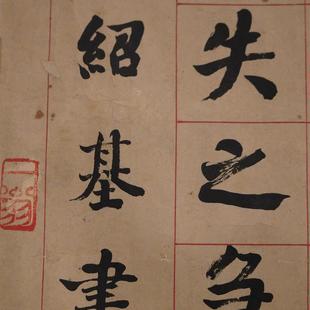 失之
紹基書